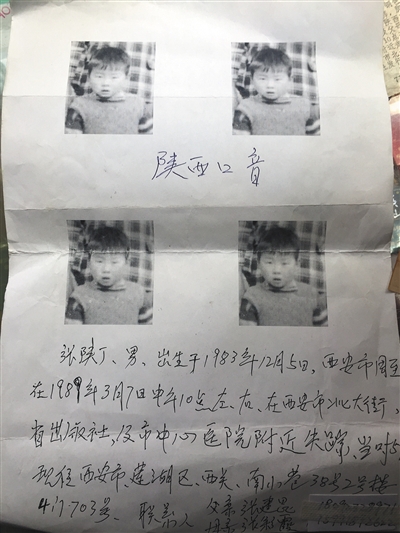 陕西口音
张陕丁、男、出生于1983年12月5日,西安市周至
在1989年3月7日中午10点左、右、在西安市北大街,
省出版社,及市中心医院附近失踪,当时5
现住西安市莲湖区、西关、南小巷38号2号楼
4门.703号、联系人 父亲
母亲